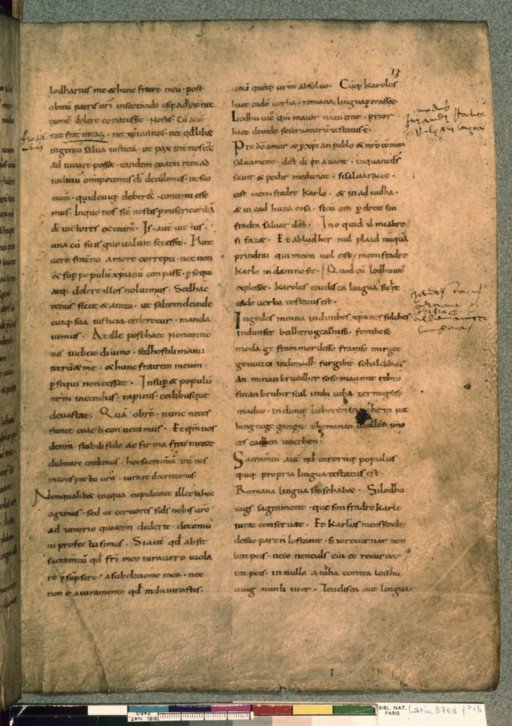 13
lodharius me & hunc fratrẽ meũ post
obitũ patris nr̃i insectando usq; ad inter nec
cionẽ delere conatus sit · Nostis · Cũ aut̃
nec fraternitas · nec xpianitas · nec qd lib&
ingeniũ salva iusticia · ut pax int̃ nos ẽẽt
ad iuvare posset · tandem coacti rem ad
iuditiũ omnipotentis di detulimus · ut suo
nutũ · quid cuiq; deber& · contenti esse
mus · In quo nos sic̃ nostis p̃ misericordiã
di victores extitim̃ · Is aut̃ victus
una cũ suis quo valuit secessit · Hinc
vero fraterno amore correpti · nec non
& sup̃ pe populũ xpianũ conpassi · p̃sequi
atq; delere illos noluimus · Sed hac
tenus sicut & antea · ut saltem deinde
cuiq; sua iusticia cederetur · manda
vimus · At ille post haec non conten
tus iudicio divino · sed hostili manu
iterũ & me · & hunc fratrem meum
p̃sequi non cessat · Insup̃ & populũ
nr̃m incendiis · rapinis · cedibusque
devastat · Quã obrẽ · nunc neces
sitate coacti convenimus · Et qm̃ vos
de nr̃a stabili fide ac firma fraternitate
dubitare credimus · hoc sacramtũ int̃ nos
in conspectu vr̃o · iurare decrevimus ·
Non qualibet iniqua cupiditate illecti hoc
agimus · sed ut certiores si ds nobis vr̃o
ad iutorio quietem dederit · de commu
ni profectu simus · Si aut̃ qd absit
sacramtũ qd fr̃i meo iuravero viola
re p̃sũpsero · a subditione mea · nec
non & a iuramento qd mihi iurastis ·
unũ quẽq; vr̃m absolvo · Cũq; karolus
haec eadẽ verba · romana lingua p̃orasset ·
Lodhuvic̃ qm̃ maior natu erat · prior
haec deinde se servaturũ testatus ẽ ·
Pro dõ amur & p̃ xpian poblo & nr̃o comun
salvament · dist di in avant · inquantds
savir & podir medunat · si salvarai eo ·
cist meon fradre Karlo · & in ad iudha ·
& in cad huna cosa · sicũ om p̃ dreit son
fradra salvar dist · In o quid il mi altre
si faz& · Et abludher nul plaid nũquã
prindrai qui meon vol cist · meon fradre
karle in damno sit · Quod cũ lodhuvic̃
explesset · karolus teudisca lingua sic h̃ec
eadẽ verba testatus est ·
In godes minna indinthes xpanes folches
indunser bedhero gealtnissi · fonthese
moda ge frammordesso framso mir got
gewizci indi madh furgibit sohaldih tes
an minan bruodher soso man mit rehtu
sinan bruher scal inthi utha zer mig soso
maduo · indi mit luheren in noh hein iut
hing nege gango · zhe minan willon imo
ces cadhen werhen ·
Sacramtũ aut̃ qd utrorũq; populus
quiq; propria lingua testatus est ·
Romana lingua sic se hab& · Si lodhu
uigs sagrament · que son fradre karlo
iurat conservat · Et karlus meos sendra
de suo part ñ lo s tanit · si io returnar non
lint pois · neio neneuls cui eo returnar
int pois · in nulla aiudha contra lodhu
uuig nun li iuer · Teudisca aut̃ lingua ·
BIBL. NAT.
PARIS
Latin 9768 f° 13